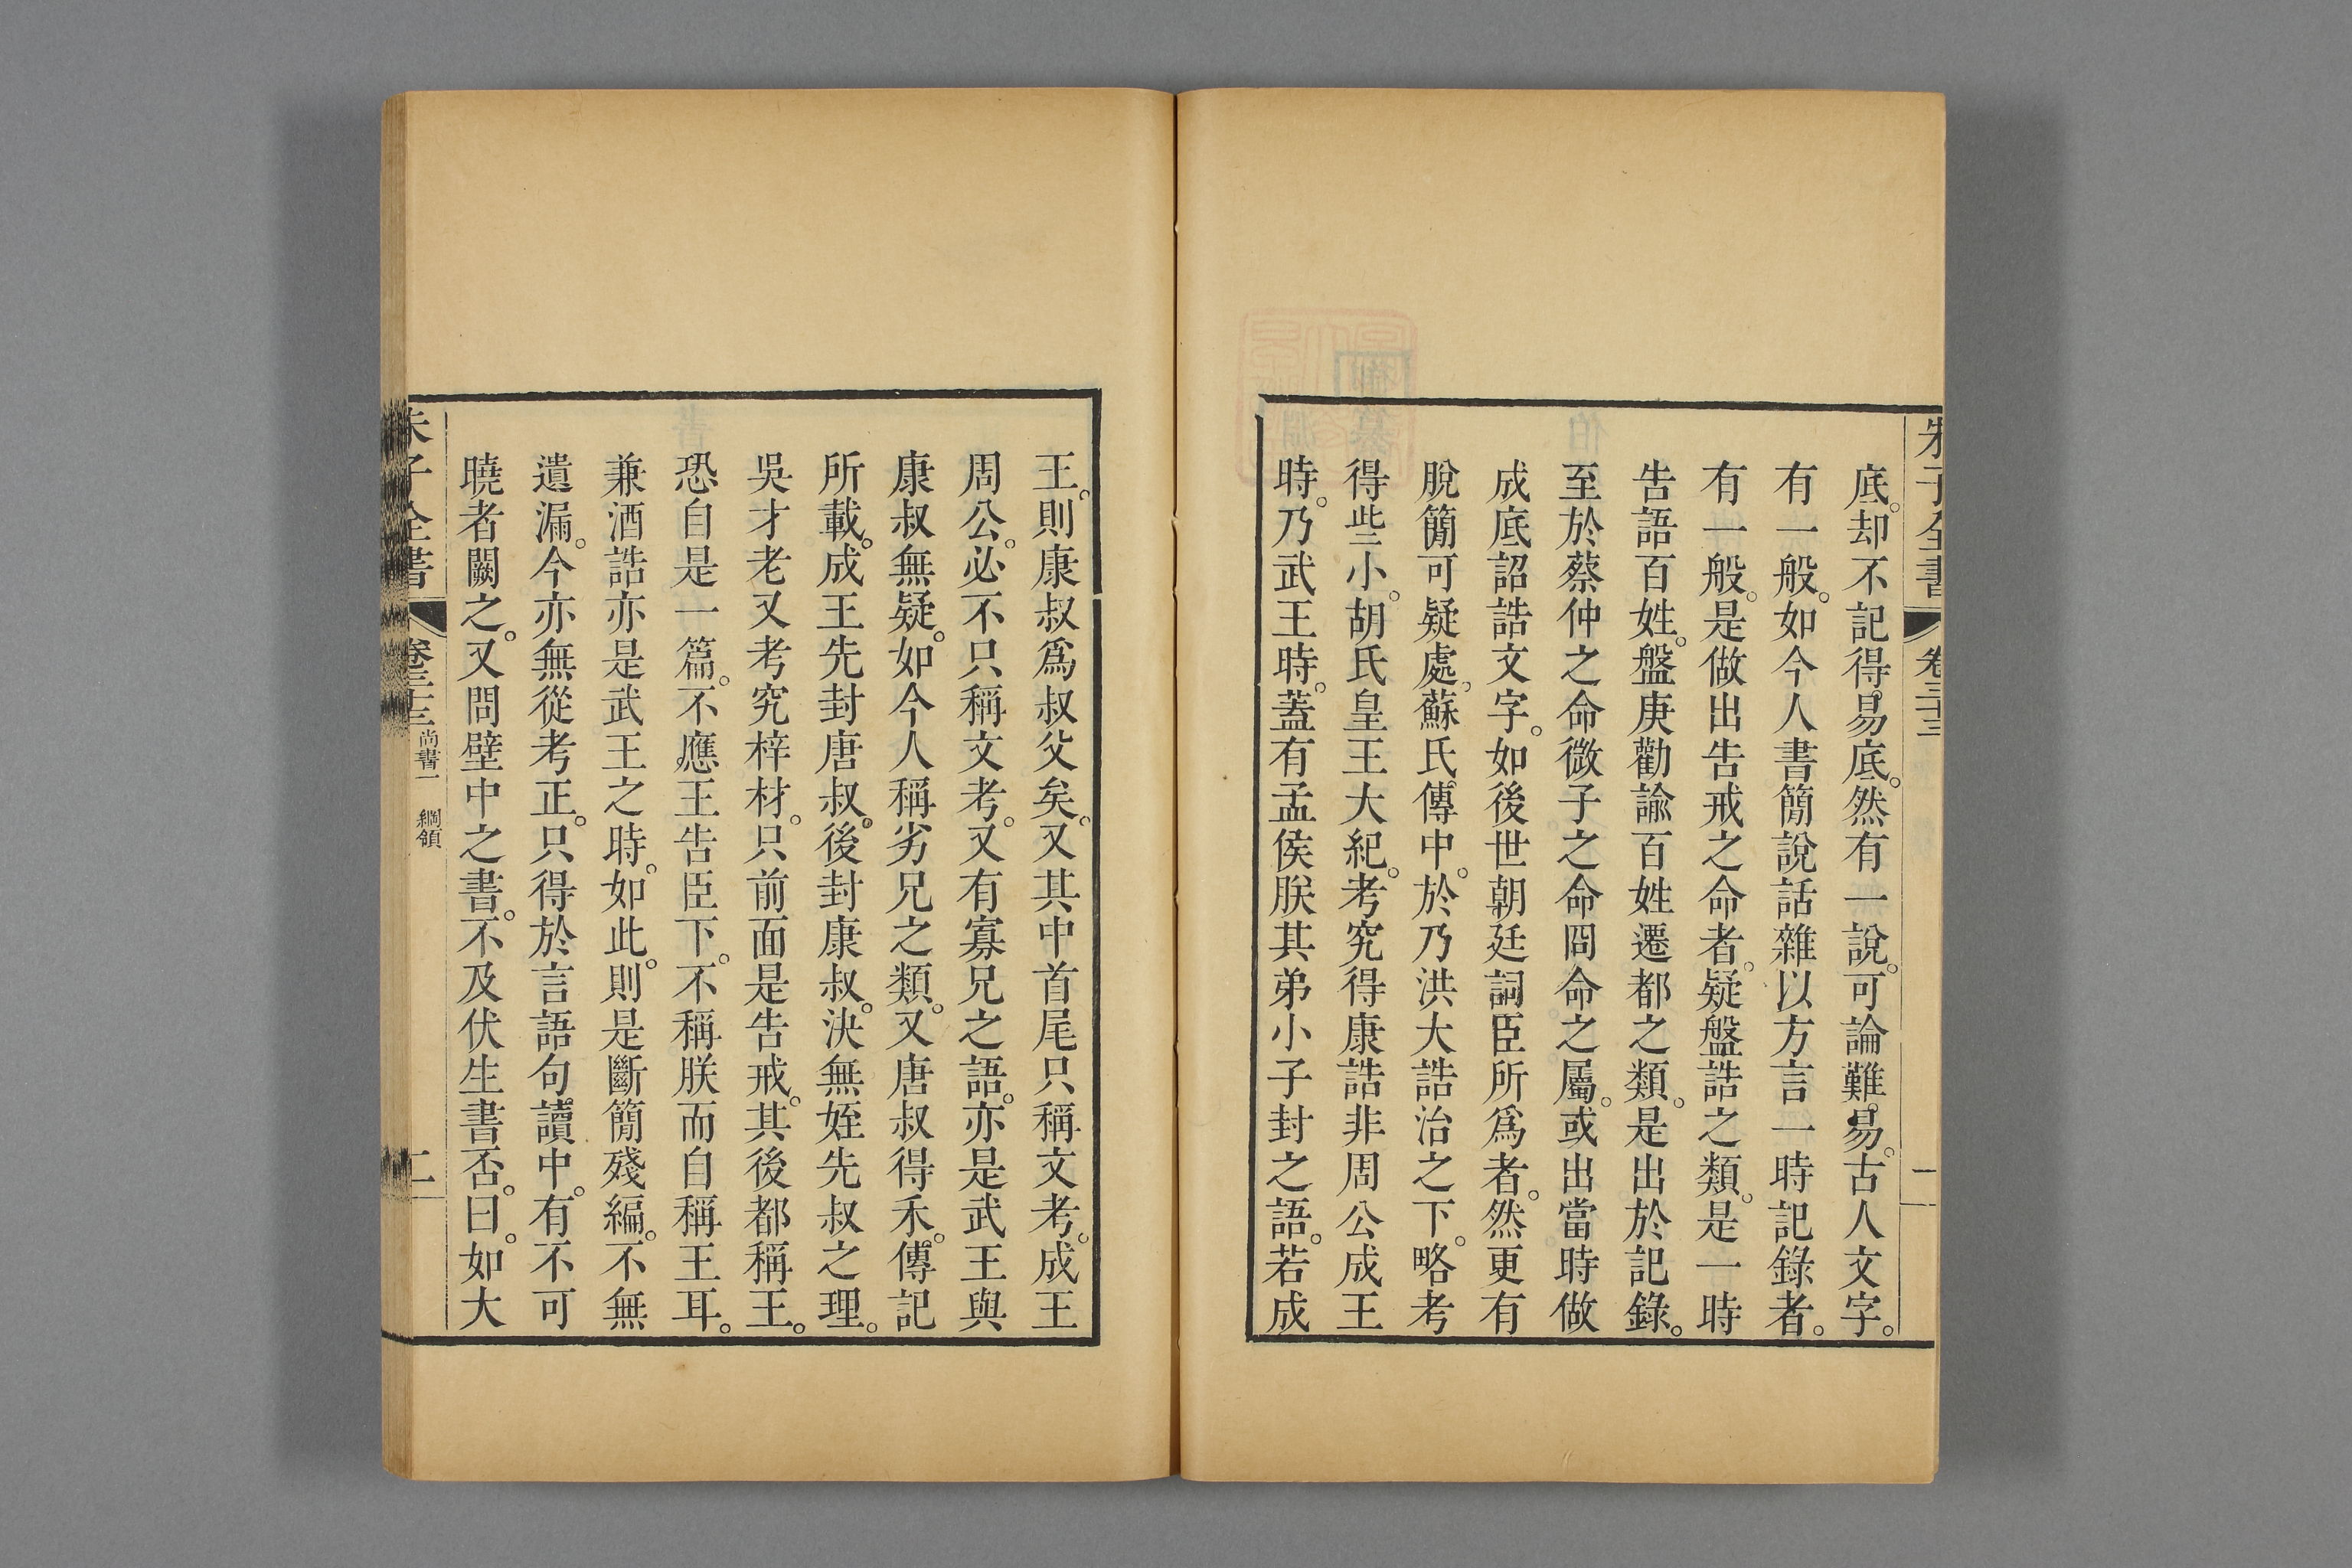 朱子全書 卷三十三 一
底。却不記得。易底。然有一說。可論難。易。古人文字。
有一般。如今人書簡說話雜以方言一時記錄者。
有一般。是做出告戒之命者。疑盤誥之類。是一時
告語百姓。盤庚勸諭百姓遷都之類。是出於記錄。
至於蔡仲之命微子之命冏命之屬。或出當時做
成底詔誥文字。如後世朝廷詞臣所爲者。然更有
脫簡可疑處。蘇氏傳中。於乃洪大誥治之下。略考
得些小。胡氏皇王大紀。考究得康誥非周公成王
時。乃武王時。蓋有孟侯朕其弟小子封之語。若成
王。則康叔爲叔父矣。又其中首尾只稱文考。成王
周公。必不只稱文考。又有寡兄之語。亦是武王與
康叔無疑。如今人稱劣兄之類。又唐叔得禾。傳記
所載。成王先封唐叔。後封康叔。決無姪先叔之理。
吳才老又考究梓材。只前面是告戒。其後都稱王。
恐自是一篇。不應王告臣下。不稱朕而自稱王耳。
兼酒誥亦是武王之時。如此。則是斷簡殘編。不無
遺漏。今亦無從考正。只得於言語句讀中。有不可
曉者闕之。又問壁中之書。不及伏生書否。曰。如大
朱子全書 卷三十三 尚書一 綱領 二